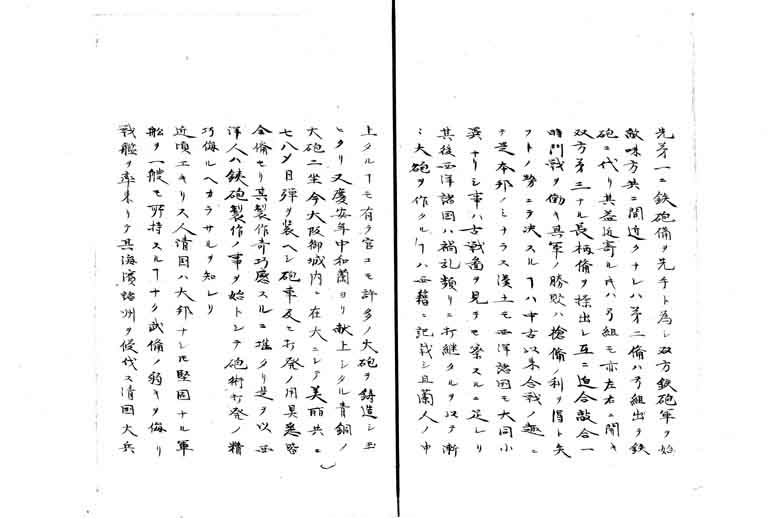 先第一ニ鉄砲備ヲ先手ト為シ双方鉄砲軍ヲ始
敵味方共ニ間近クナレハ第二備ハ弓組出テ鉄
砲ニ代リ其益近寄ル時ハ弓組モ亦左右ニ開キ
双方第三ナル長柄備ヲ操出シ互ニ迫合敲合一
時ノ戦ヲ働キ其軍ノ勝敗ハ槍備ノ利ヲ得ト失
フトノ勢ニテ決スルヿハ中古以来合戦ノ趣ニ
テ是本邦ノミナラス漢土モ西洋諸国モ大同小
異ナリシ事ハ古戦畵ヲ見テモ察スルニ足レリ
其後西洋諸国ハ禍乱頻リニ打継クヲ以テ漸
ニ大砲ヲ作タルヿハ西籍ニ記載シ且蘭人ノ申
上タルヿモ有テ官ニモ許多ノ大砲ヲ鋳造シ玉
ヒタリ又慶安年中和蘭ヨリ献上シタル青銅ノ
大砲二坐今大阪御城内ニ在大ニシテ美麗共ニ
七八〆目弾ヲ装ヘシ砲車及ヒ打発ノ用具悉皆
全備セリ其製作奇巧感スルニ堪タリ是ヲ以西
洋人ハ鉄砲製作ノ事ヲ始トシテ砲術打発ノ精
巧侮ルヘカラサルヲ知レリ
近頃エキリス人清国ハ大邦ナレ𪜈堅固ナル軍
船ヲ一艘モ所持スルヿナク武備ノ弱キヲ侮リ
戦艦ヲ率来リテ其海濱諸州ヲ侵伐ス清国大兵